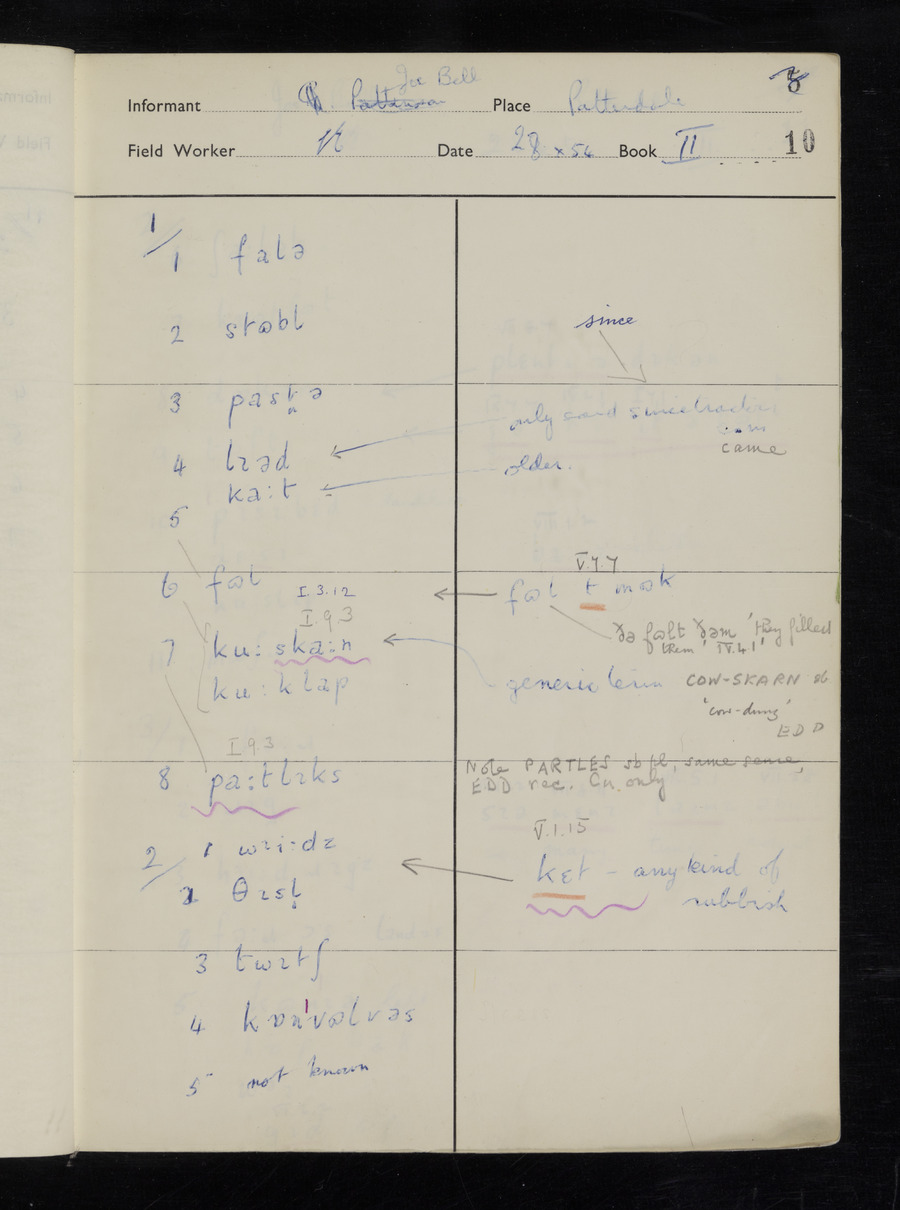 Joe Bell
Informant Place Patterdale
Field Worker Date 28 x 54 Book II 10
1/1 falə
2 stɷbl
since
3 pastṇə
only said since tractors
came
4 lɪəd
older.
ka:t
5
6 fɷl
V.7.7
fɷl t mɷk
I.3.12
I.9.3
ðə fɷlt ðəm 'they filled
them' IV.4.1
7 ku: ska:n
generic term COW-SKARN sb
'cow-dung'
EDD
ku: klap
I.9.3
8 pa:tlɪks
Note PARTLES sb pl, same sense,
EDD rec. Cu. only
V.1.15
2/1 wi:dz
kɛt - any kind of
rubbish
2 θɪsl̩
3 twɪtʃ
4 kɒn'vɒlvəs
5 not known